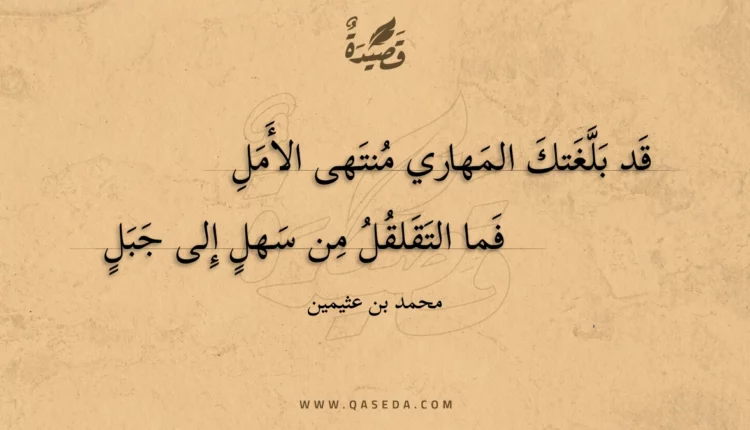 قَصِيْدَةٌ
قَد بَلَّغَتكَ المَهاري مُنتَهى الأَمَلِ
فَما التَقَلقُلُ مِن سَهلٍ إِلى جَبَلٍ
محمد بن عثيمين
WWW.QASEDA.COM